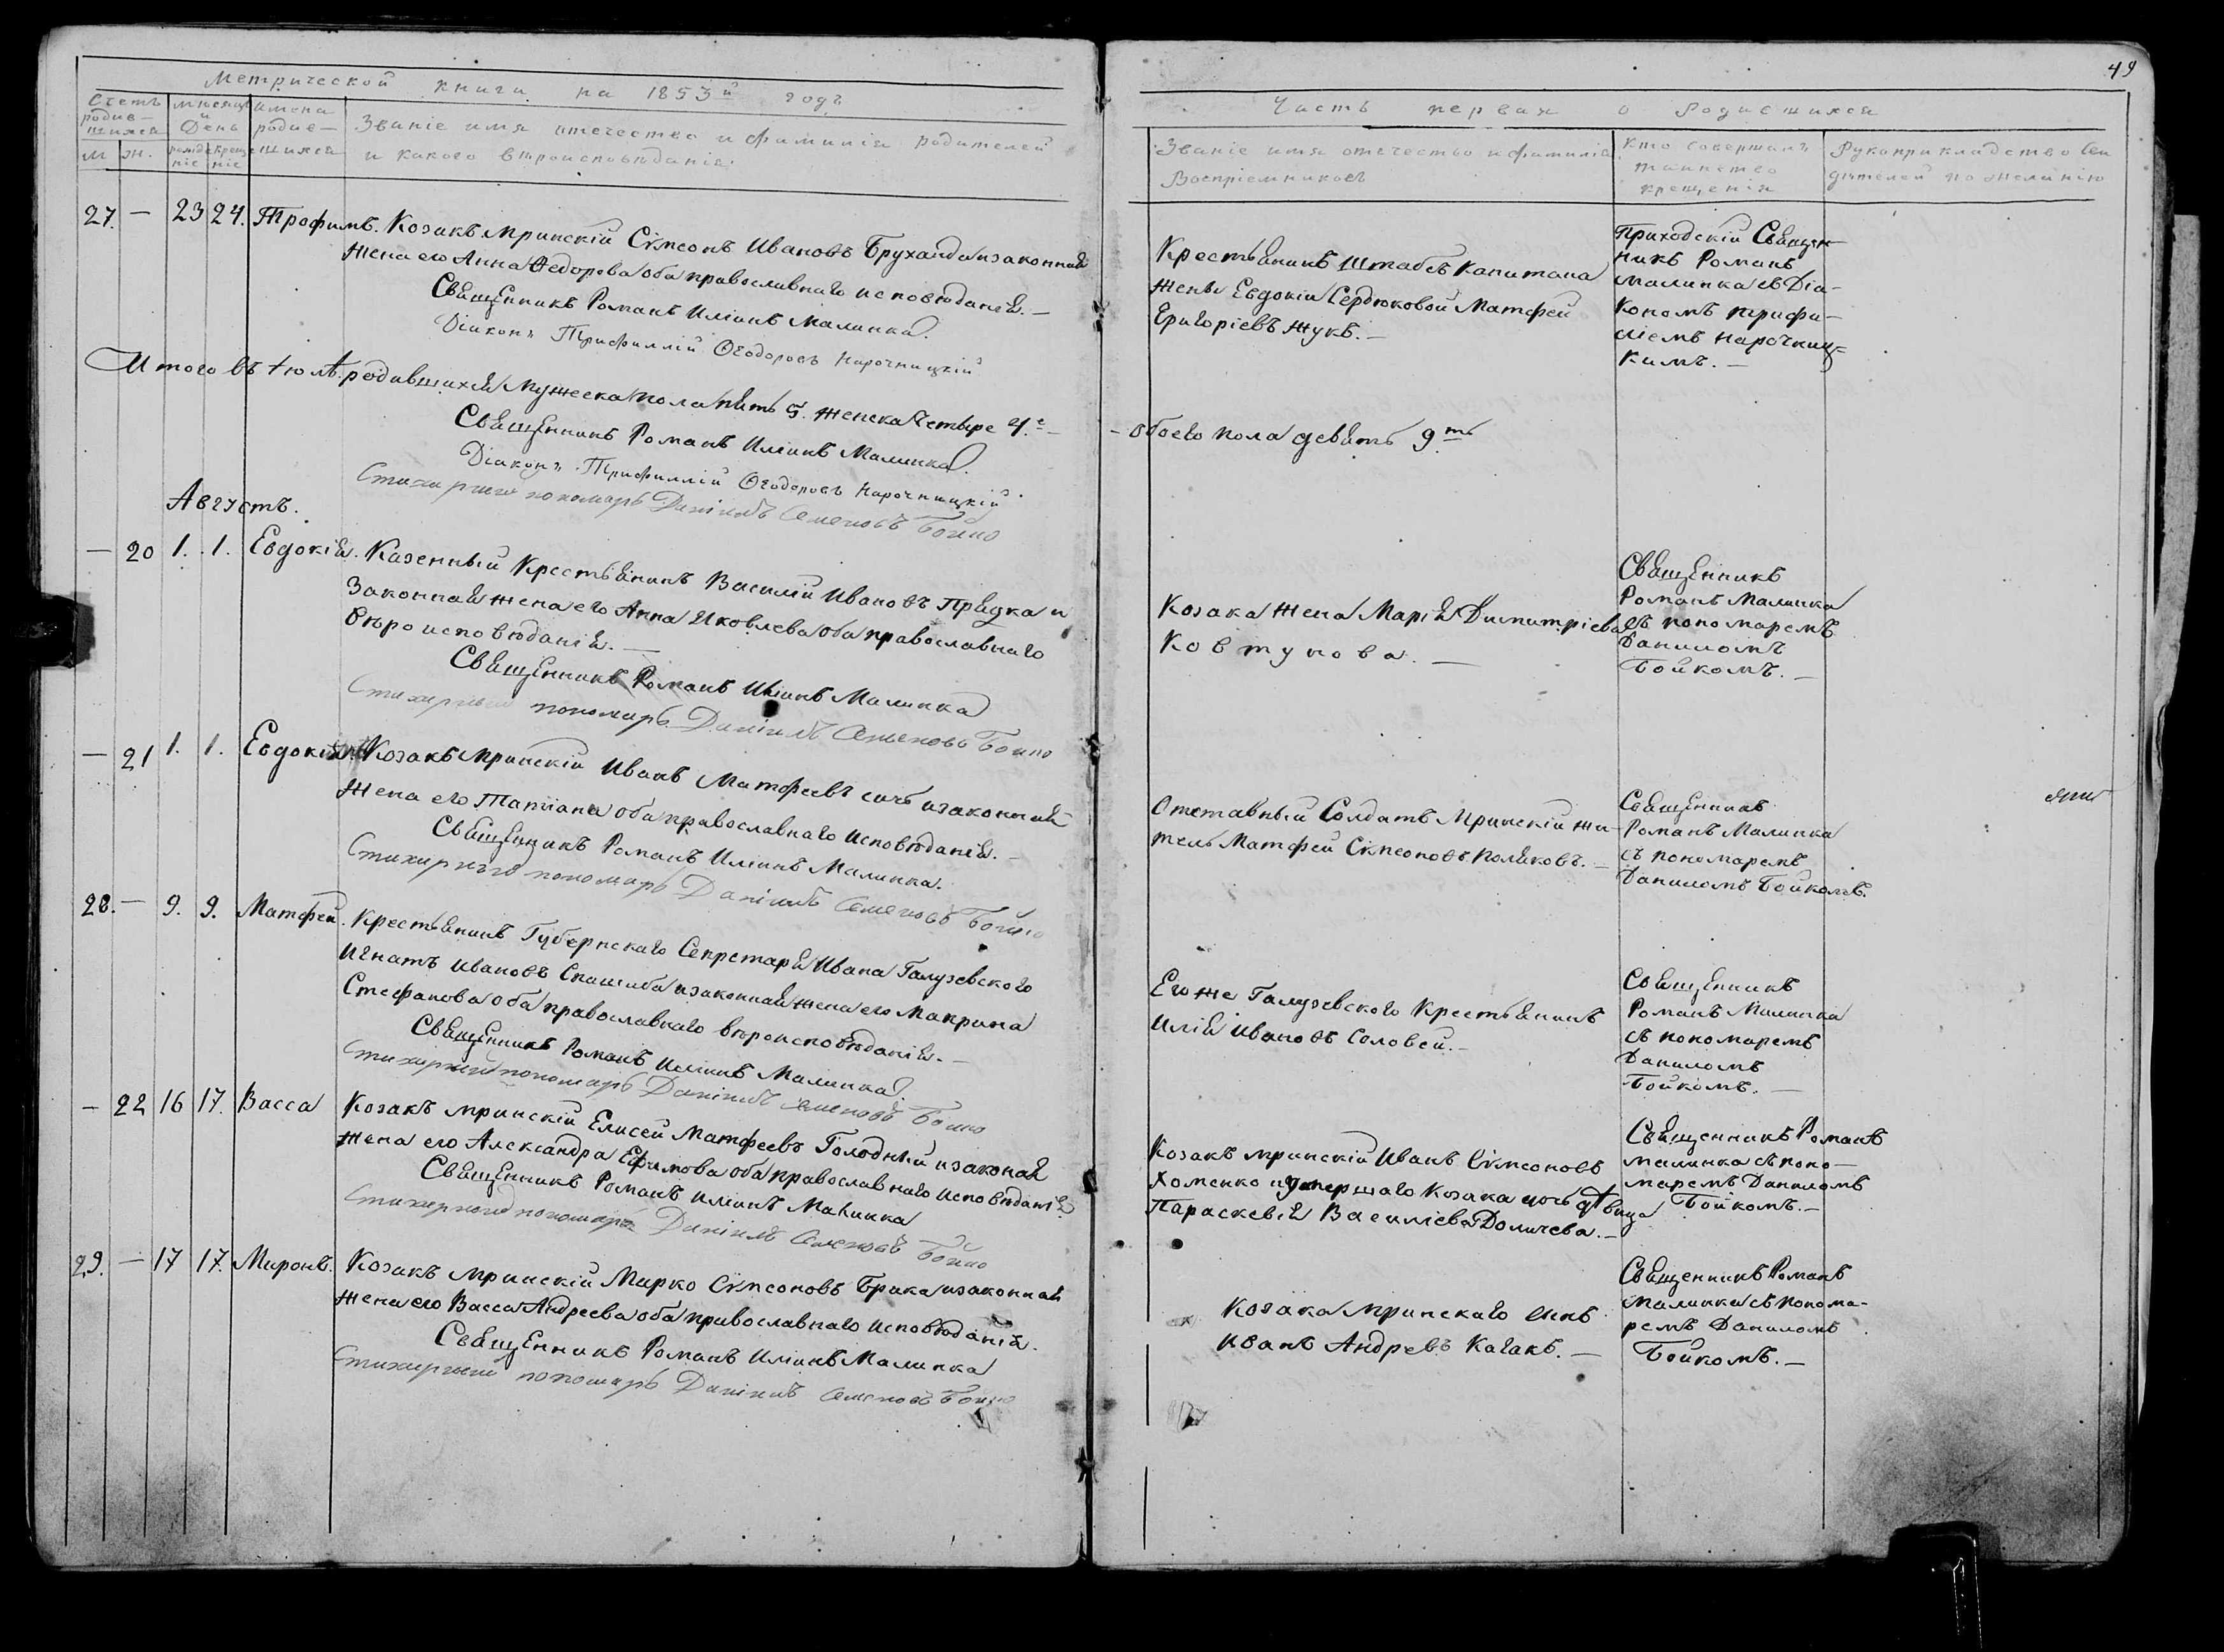 Метрической книги на 1853й годъ
Счетъ родив-шихся
М. Ж.
Мѣсяцъ и День
рожденіе крещеніе
Имена родив-шихся
Званіе имя отечество и фамилія родителей
и какого вѣроисповѣданія.
27. — 23 24. Трофимъ. Козакъ Мринскій Сімеонъ Ивановъ Бруханда и законная
жена его Анна Федорова оба православнаго исповѣданія. —
Священникъ Романъ Иліинъ Малинка.
Діаконъ Трифиллій Ѳеодоровъ Нарочницкій
Итого въ Іюлѣ родившихся Мужеска пола пять 5. женска Четыре 4.е —
Священникъ Романъ Иліинъ Малинка.
Діаконъ Трифиллій Ѳеодоровъ Нарочницкій
Стихарный пономарь Даніилъ Семеновъ Бойко
Августъ.
— 20 1. 1. Евдокія. Казенный Крестьянинъ Василій Ивановъ Прядка и
Законная жена его Анна Яковлева оба православнаго
вѣроисповѣданія. —
Священникъ Романъ Иліинъ Малинка
Стихарный пономарь Даніилъ Семеновъ Бойко
— 21 1. 1. Евдокія. Козакъ Мринскій Иванъ Матфеевъ и законная
жена его Татіана оба православнаго исповѣданія. —
Священникъ Романъ Иліинъ Малинка.
Стихарный пономарь Даніилъ Семеновъ Бойко
28. — 9. 9. Матфей. Крестьянинъ Губернскаго Секретаря Ивана Галузевского
Игнатъ Ивановъ и законная жена его Макрина
Стефанова оба православнаго вѣроисповѣданія. —
Священникъ Романъ Иліинъ Малинка.
Стихарный пономарь Даніилъ Семеновъ Бойко
— 22 16 17. Васса Козакъ Мринскій Елисей Матфеевъ Голодный и законая
жена его Александра Ефимова оба православнаго исповѣданія
Священникъ Романъ Иліинъ Малинка
Стихарный пономарь Даніилъ Семеновъ Бойко
29. — 17 17. Миронъ. Козакъ Мринскій Мирко Сімеоновъ Брика и законная
жена его Васса Андреева оба православнаго исповѣданія.
Священникъ Романъ Иліинъ Малинка
Стихарный пономарь Даніилъ Семеновъ Бойко
49
Часть первая о Родившихся
Званіе имя отечество и фамилія
Воспріемниковъ
Кто совершалъ
таинство
крещенія
Рукоприкладство Сви
дѣтелей по желанію
Крестьянинъ Штабсъ Капитана
жены Евдокіи Сердюковой Матфей
Григоріевъ Жукъ. —
Приходскій Священ-
никъ Романъ
Малинка съ Діа-
кономъ Трифи-
ліемъ Нарочниц-
кимъ. —
— Обоего пола девять 9.ть
Козака жена Марія Димитріева
Ковтунова. —
Священникъ
Романъ Малинка
съ пономаремъ
Даниломъ
Бойкомъ. —
Отставный Солдатъ Мринскій жи-
тель Матфей Сімеоновъ Поляковъ. —
Священникъ
Романъ Малинка
съ пономаремъ
Даниломъ Бойкомъ.
Его же Галузевского Крестьянинъ
Илія Ивановъ Соловей. —
Священникъ
Романъ Малинка
съ пономаремъ
Даниломъ
Бойкомъ. —
Козакъ Мринскій Иванъ Сімеоновъ
Хоменко и умершаго Козака дочь дѣвица
Параскевія Василіева —
Священникъ Романъ
Малинка съ поно-
маремъ Даниломъ
Бойкомъ. —
Козака Мринскаго сынъ
Иванъ Андреевъ —
Священникъ Романъ
Малинка съ понома-
ремъ Даниломъ
Бойкомъ. —